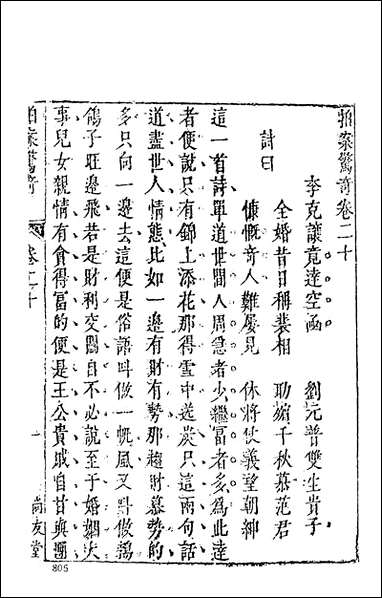 拍案驚奇卷二十
李克讓竟達空函　劉元普雙生貴子
詩曰
全婚昔日稱裴相　助殯千秋慕范君
慷慨奇人難屢見　休將仗義望朝紳
這一首詩單道世間人周急者少繼富者多爲此達
者便說只有錦上添花那得雪中送炭只這兩句話
道盡世人情態比如一邊有財有勢那趨財慕勢的
多只向一邊去這便是俗語叫做一帆風又叫做鵓
鴿子旺邊飛若是財利交關自不必說至于婚姻大
事兒女親情有貪得富的便是王公貴戚自甘與團
拍案驚奇
卷二十
一
尚友堂
805